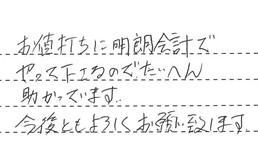 お値打ちに明朗会計で
やって下さるのでたいへん
助かっています。
今後ともよろしくお願い致します